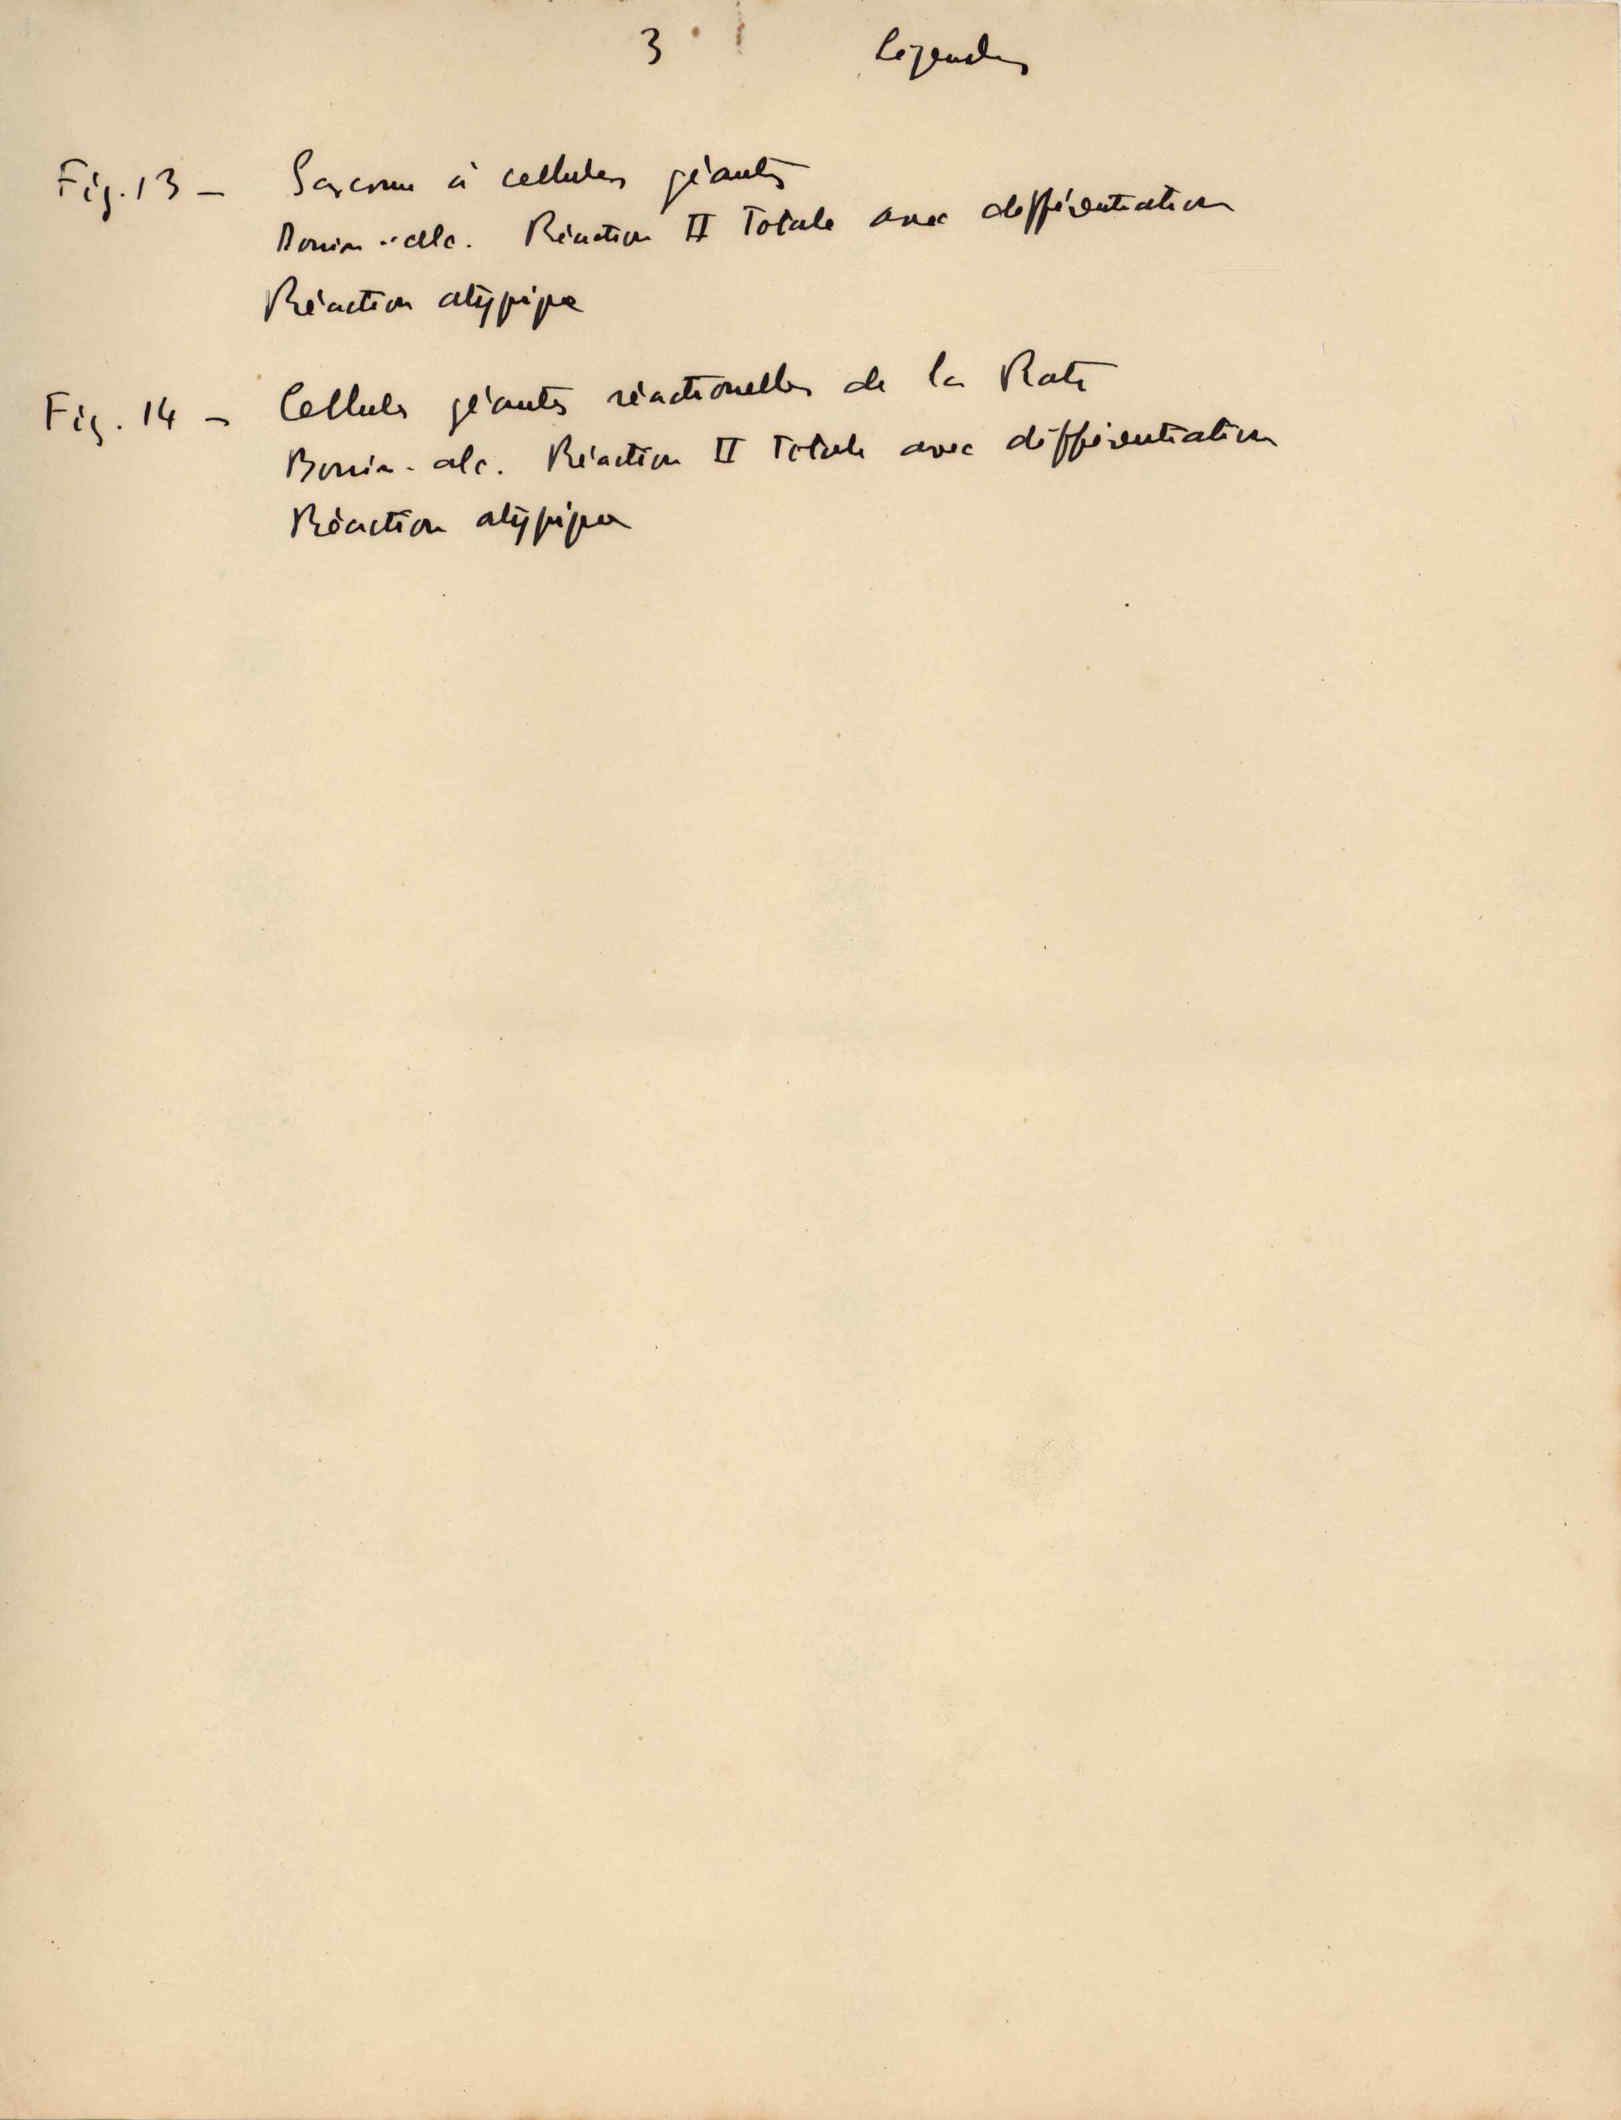 3 Légendes
Fig. 13 – Sarcome à cellules géantes
Bouin-alc. Réaction II Totale avec différentiation
Réaction atypique
Fig. 14 – Cellules géantes réactionelles de la Rate
Bouin-alc. Réaction II Totale avec différentiation
Réaction atypique